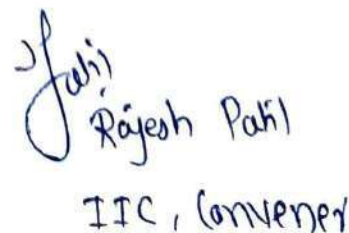 Rajesh Patil
IIC, Convener